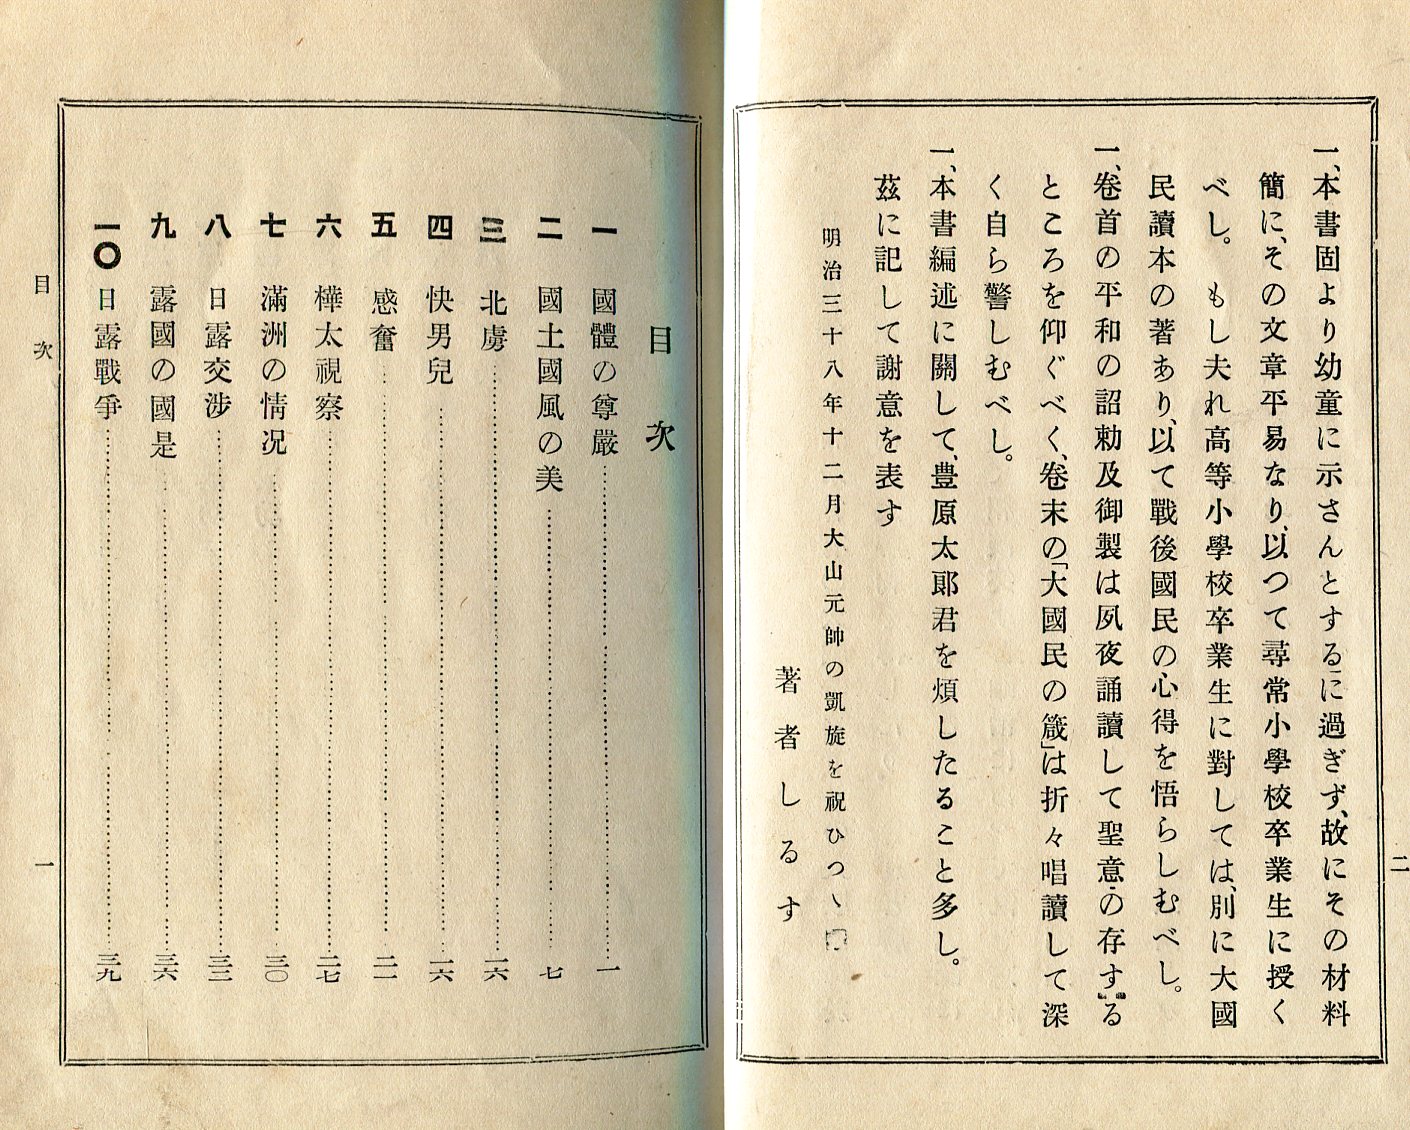 二
一、本書固より幼童に示さんとするに過ぎず、故にその材料
簡に、その文章平易なり、以つて尋常小學校卒業生に授く
べし。もし夫れ高等小學校卒業生に對しては、別に大國
民讀本の著あり、以て戰後國民の心得を悟らしむべし。
一、卷首の平和の詔勅及御製は夙夜誦讀して聖意の存する
ところを仰ぐべく、卷末の「大國民の箴」は折々唱讀して深
く自ら警しむべし。
一、本書編述に關して、豊原太郞君を煩したること多し。
茲に記して謝意を表す
明治三十八年十二月大山元帥の凱旋を祝ひつゝ
著者しるす
目次
一 國體の尊嚴 一
二 國土國風の美 七
三 北虜 一六
四 快男兒 一六
五 感奮 二一
六 樺太視察 二七
七 滿洲の情況 三〇
八 日露交渉 三三
九 露國の國是 三六
一〇 日露戰爭 三九
目次 一